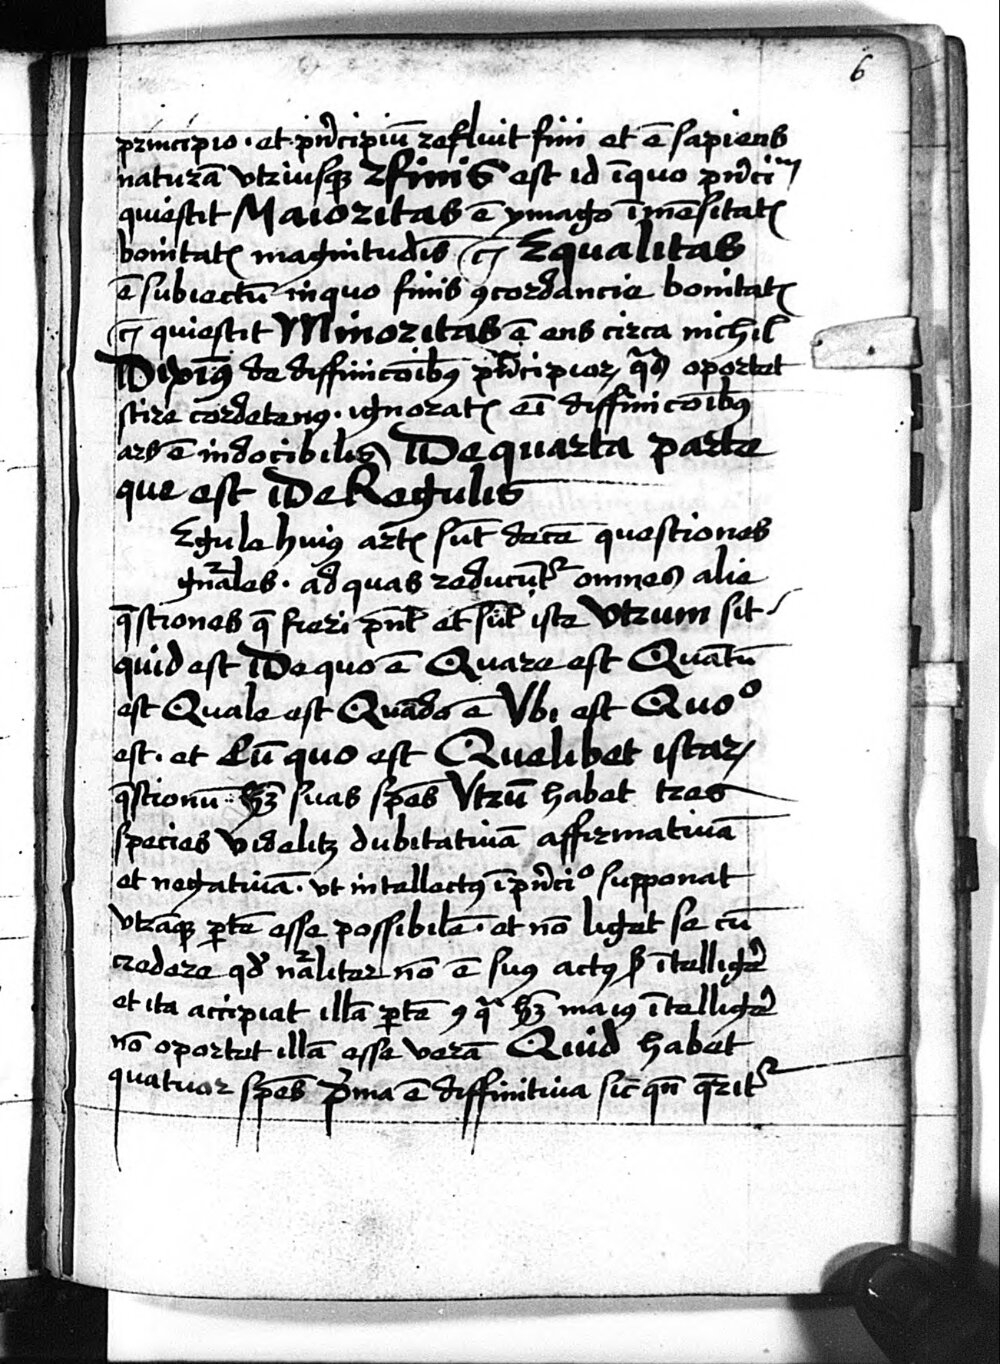 6
principio · et prīcipiū refluit fini et ē sapiens
naturā vtriusqꝫ Finis est id ī quo prīciᵐ
quiescit Maioritas ē ymago īmēsitatꝭ
bonitatꝭ magnitudīs ⁊cꝭ Equalitas
ē subiectū in quo finis ꝯcordancie bonitatꝭ
⁊cꝭ quiescit Minoritas ē ens circa nichil
Diximꝰ de diffinicōibꝰ prīcipiorꝝ qᷓs oportet
scire cordetenꝰ · ignoratꝭ eī diffinicōibꝰ
ars ē indocibilis De quarta parte
que est De Regulis
Egule huiꝰ artꝭ sūt decē questiones
gn̄ales · ad quas reducūtᷣ omnes alie
q̄stiones q̄ fieri pn̄t et sūt iste Vtrum sit
quid est De quo ē Quare est Quātū
est Quale est Quādo ē Vbi est Quoº
est · et Cū quo est Quelibet istarꝝ
q̄stionū hꝫ suas spēs Vtrū habet tres
species videlitꝫ dubitatiuā affirmatiuā
et negatiuā · vt intellectꝰ ī prīciº supponat
vtrāqꝫ ꝑtē esse possibilē · et nō liget se cū
credere qd̄ nᷓaliter nō ē suꝰ actꝰ sꝫ ītelligē
et ita accipiat illā ꝑtē ꝯ qᷓ hꝫ maiꝰ ītelligē
nō oportet illā esse verā Quid habet
quatuor spēs p̄ma ē diffinitiua sic qn̄ q̄ritᷣ